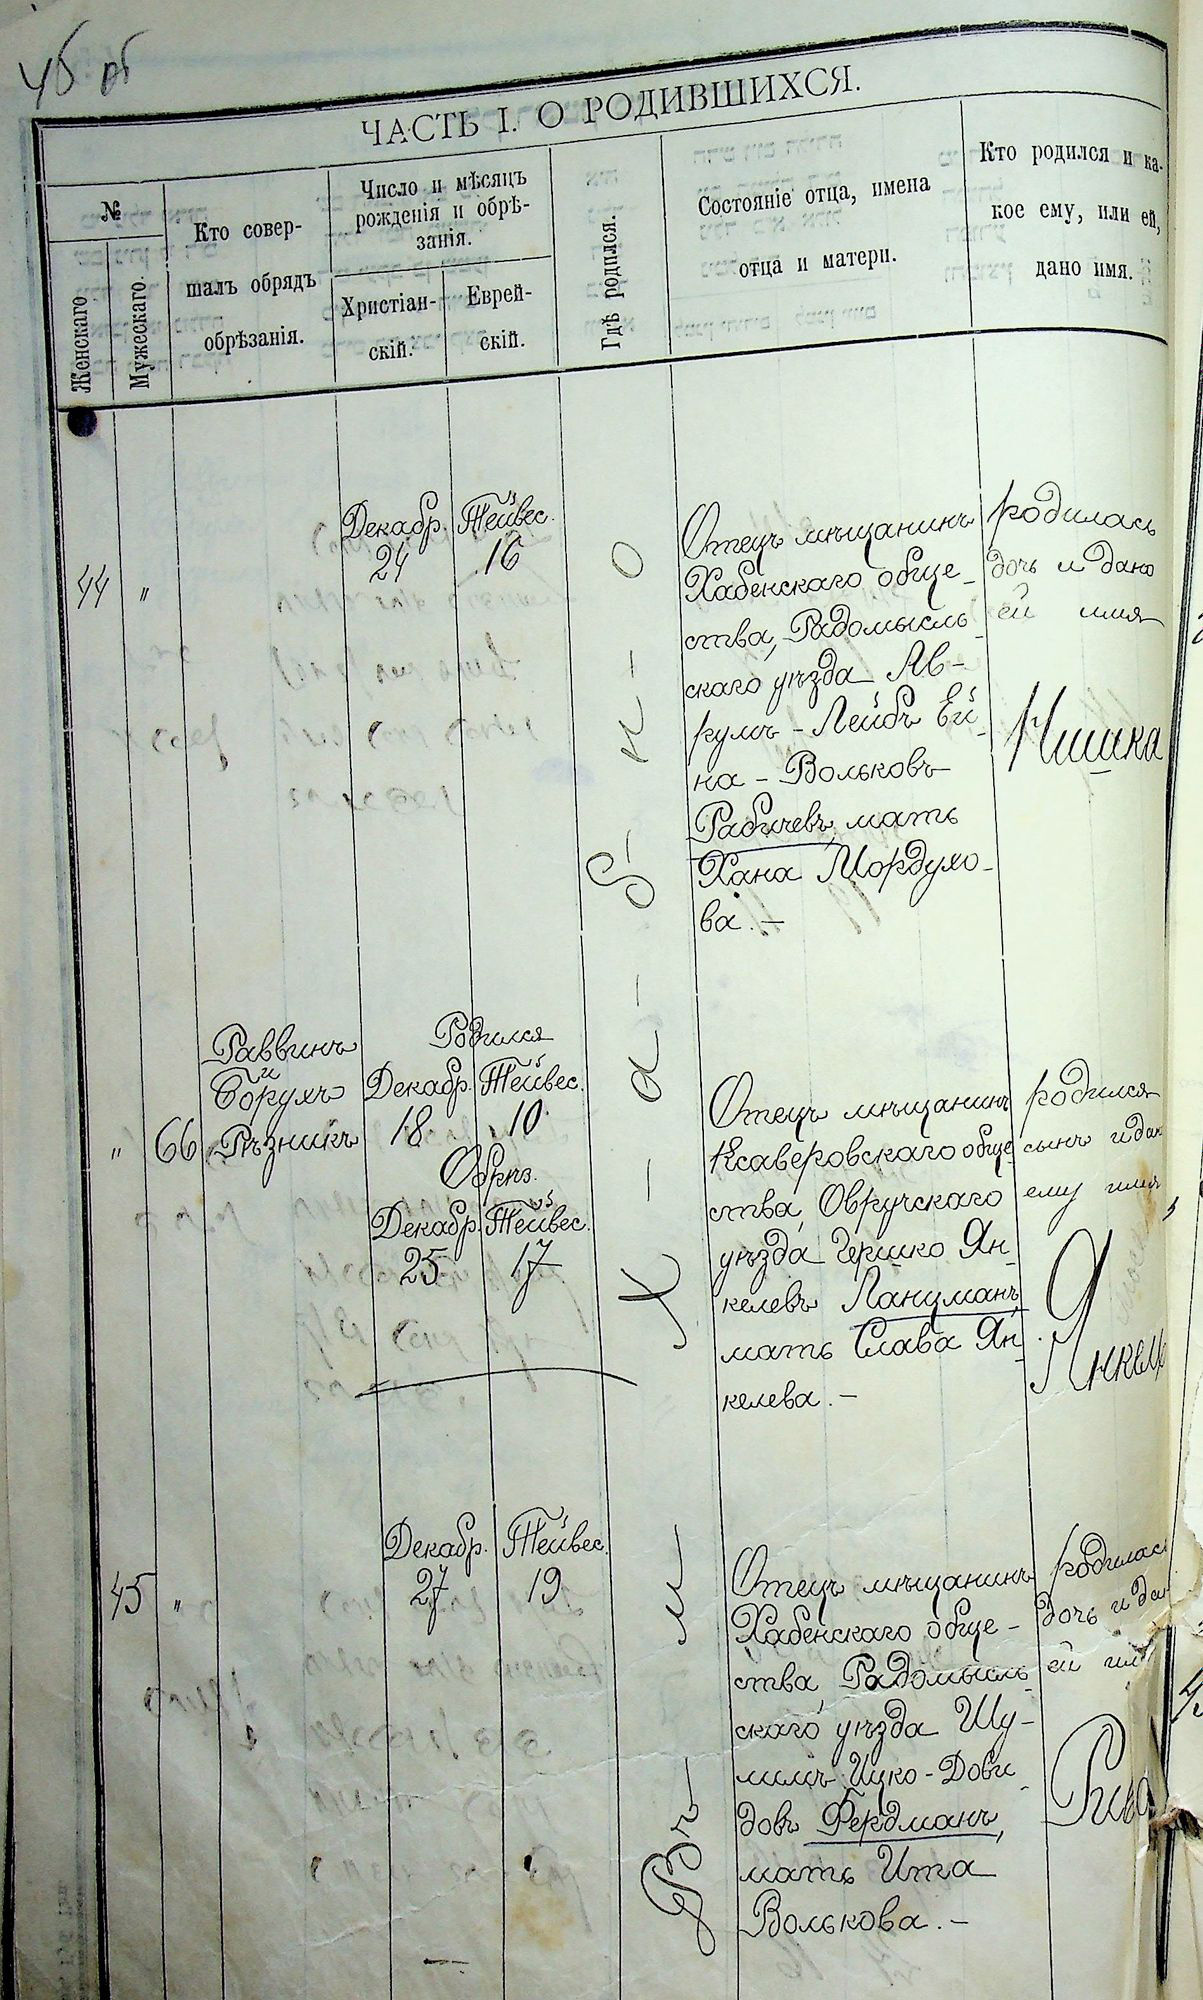 45 об
ЧАСТЬ I. О РОДИВШИХСЯ.
№
Женскаго
Мужескаго.
Кто совер-
шалъ обрядъ
обрѣзанія.
Число и мѣсяцъ
рожденія и обрѣ-
занія.
Христіан-
скій.
Еврей-
скій.
Гдѣ родился.
Состояніе отца, имена
отца и матери.
Кто родился и ка-
кое ему, или ей,
дано имя.
Въ м. Хабно
44 "
Декабр. 24
Тейвес. 16
Отецъ мѣщанинъ
Хабенскаго обще-
ства, Радомысль-
скаго уѣзда Ав-
румъ-Лейбъ Ей-
на-Вольковъ
Рабичевъ, мать
Хана Мордухо-
ва.-
родилась
дочь и дано
ей имя
Нишка
" 66
Раввинъ
и
Борухъ
Рѣзникъ
Родился
Декабр. 18
Тейвес. 10
Обрѣз.
Декабр. 25
Тейвес. 17
Отецъ мѣщанинъ
Ксаверовскаго обще-
ства, Овручскаго
уѣзда Гершко Ян-
келевъ Лануманъ,
мать Слава Ян-
келева.-
родился
сынъ и дан
ему имя
Янкель
45 "
Декабр. 27
Тейвес. 19
Отецъ мѣщанинъ
Хабенскаго обще-
ства, Радомысль-
скаго уѣзда Шу-
лимъ Ицко-Дови-
довъ Фердманъ,
мать Ита
Волькова.-
родилась
дочь и дан
ей имя
Рива